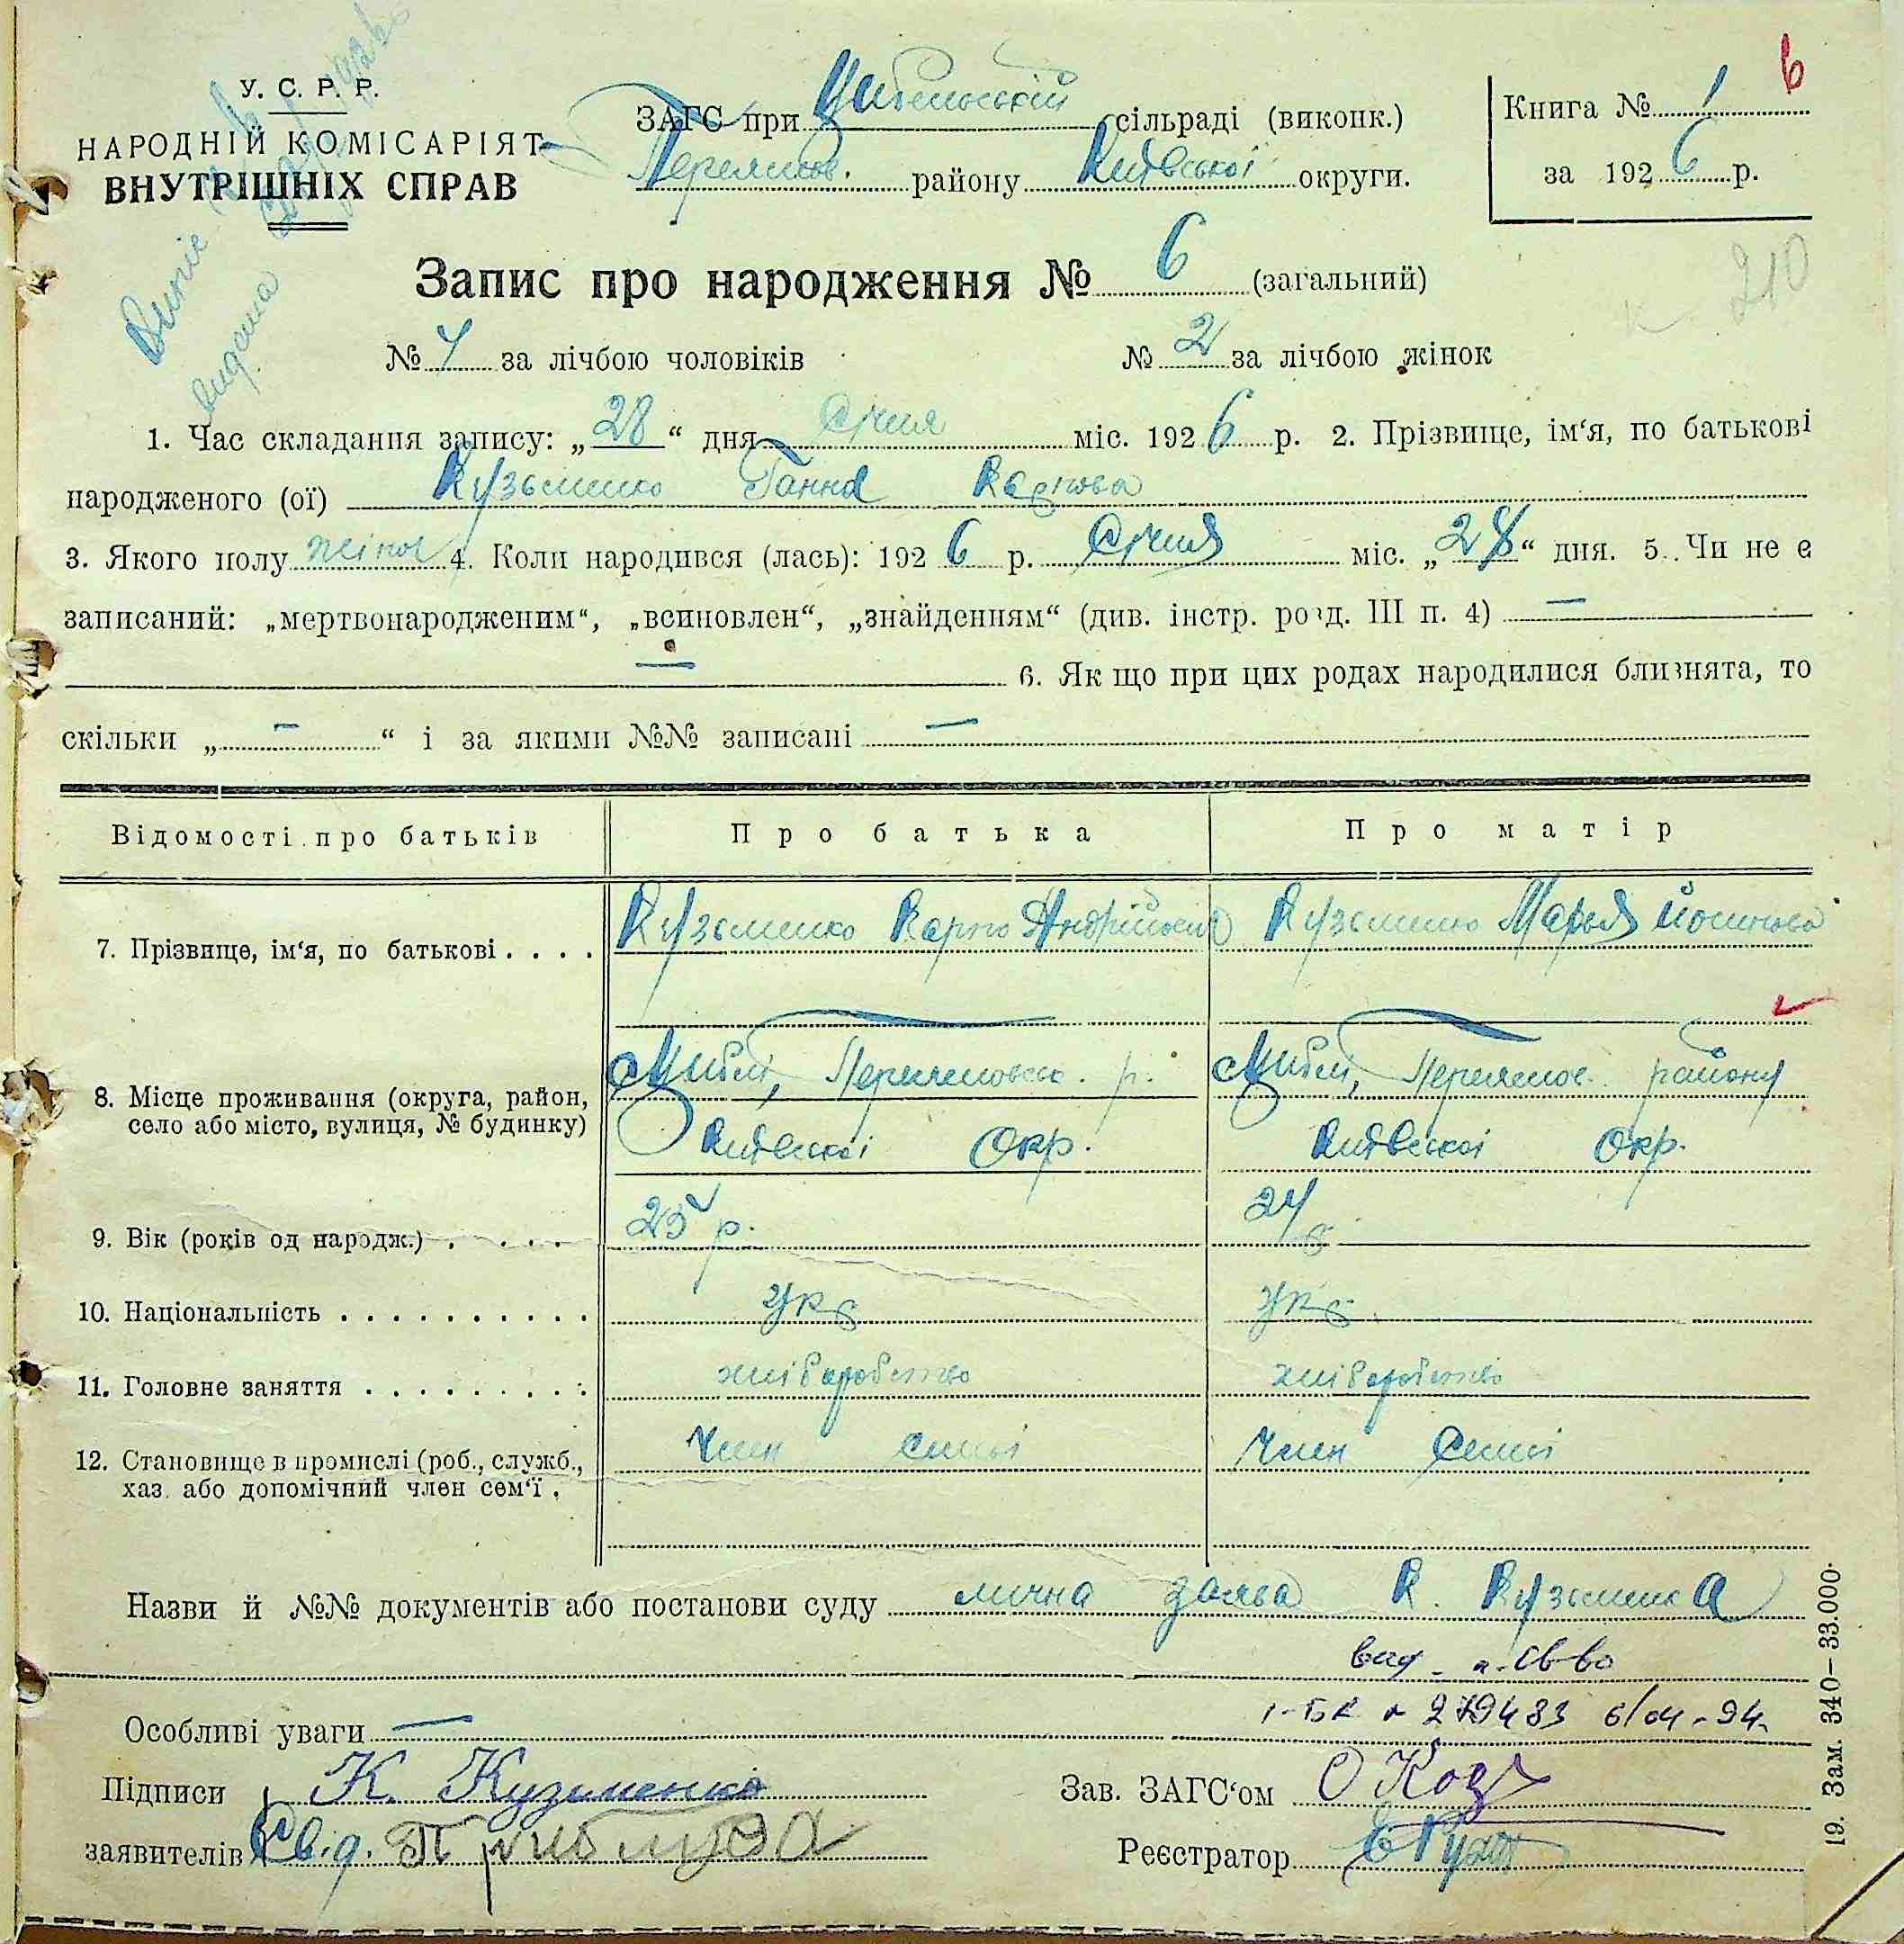 У. С. Р. Р.
НАРОДНІЙ КОМІСАРІЯТ
ВНУТРІШНІХ СПРАВ
ЗАГС при Цибельській сільраді (виконк.)
Переяслов. району Київської округи.
Книга № 1
6
за 1926 р.
210
Запис про народження № 6 (загальний)
№ 4 за лічбою чоловіків № 2 за лічбою жінок
1. Час складання запису: „28“ дня Січня міс. 1926 р. 2. Прізвище, ім‘я, по батькові
народженого (ої) Кузьменко Ганна Карпова
3. Якого полу жіноч 4. Коли народився (лась): 1926 р. Січня міс. „28“ дня. 5. Чи не є
записаний: „мертвонародженим“, „всиновлен“, „знайденням“ (див. інстр. розд. III п. 4) —
— 6. Як що при цих родах народилися близнята, то
скільки „ — “ і за якими №№ записані —
Відомості про батьків Про батька Про матір
7. Прізвище, ім‘я, по батькові . . . . Кузьменко Карпо Андрійович Кузьменко Марья Йосипова
8. Місце проживання (округа, район, с Циблі, Переяславськ. р. с Циблі, Переяслов. району
село або місто, вулиця, № будинку) Київської Окр. Київської Окр.
9. Вік (років од народж.) . . . . . 25 р. 24 р
10. Національність . . . . . . . . . . укр укр
11. Головне заняття . . . . . . . . . хліборобство хліборобство
12. Становище в промислі (роб., служб., Член семьі Член Семьі
хаз. або допомічний член сем‘ї .
Назви й №№ документів або постанови суду лична заява К. Кузьменка
вид. п. св-во
I-БК № 279483 6/04-94
Особливі уваги —
Підписи К. Кузьменко Зав. ЗАГС‘ом
заявителів Свід. Приблуда Реєстратор
19. Зам. 340—33.000.